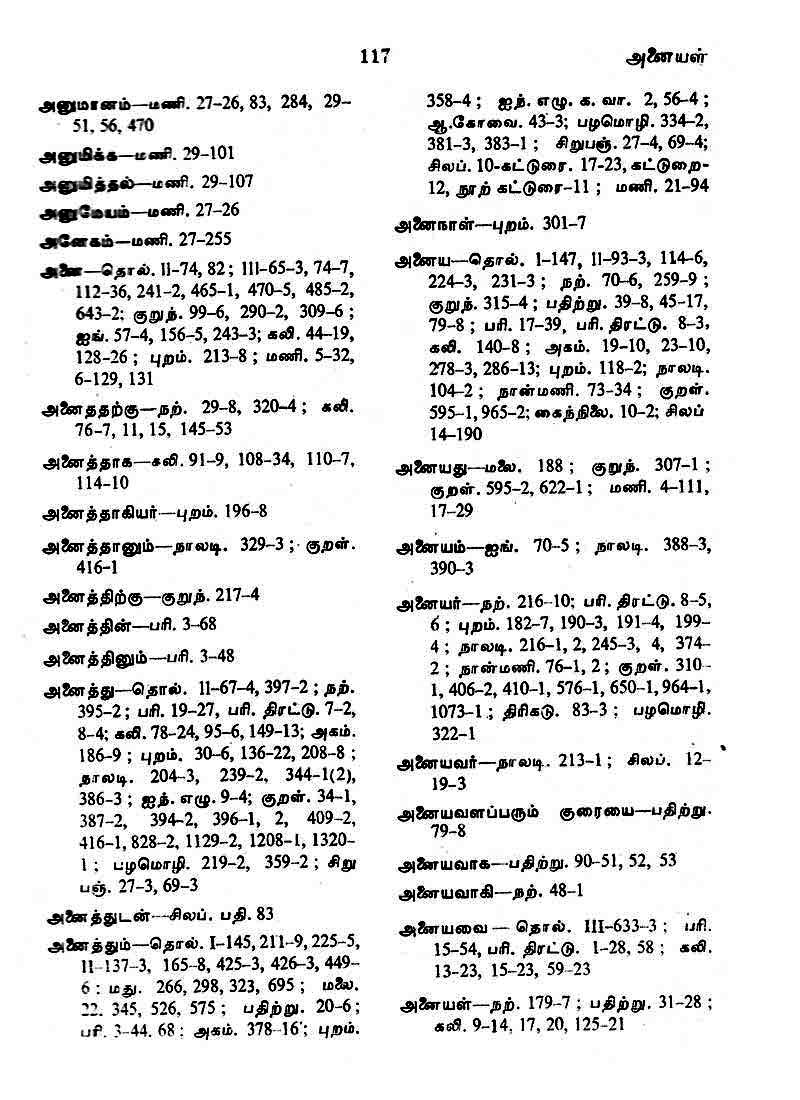 117
அனையள்
அனுமானம்—மணி. 27–26, 83, 284, 29–
51, 56, 470
அனுமிக்க—மணி. 29–101
அனுமித்தல்—மணி. 29–107
அனுமேயம்—மணி. 27–26
அனேகம்—மணி. 27–255
அனை—தொல். II–74, 82; III–65–3, 74–7,
112–36, 241–2, 465–1, 470–5, 485–2,
643–2; குறுந். 99–6, 290–2, 309–6;
ஐங். 57–4, 156–5, 243–3; கலி. 44–19,
128–26; புறம். 213–8; மணி. 5–32,
6–129, 131
அனைததற்கு—நற். 29–8, 320–4; கலி.
76–7, 11, 15, 145–53
அனைத்தாக—கலி. 91–9, 108–34, 110–7,
114–10
அனைத்தாகியர்—புறம். 196–8
அனைத்தானும்—நாலடி. 329–3; குறள்.
416–1
அனைத்திற்கு—குறுந். 217–4
அனைத்தின்—பரி. 3–68
அனைத்தினும்—பரி. 3–48
அனைத்து—தொல். II–67–4, 397–2; நற்.
395–2; பரி. 19–27, பரி. திரட்டு. 7–2,
8–4; கலி. 78–24, 95–6, 149–13; அகம்.
186–9; புறம். 30–6, 136–22, 208–8;
நாலடி. 204–3, 239–2, 344–1(2),
386–3; ஐந். எழு. 9–4; குறள். 34–1,
387–2, 394–2, 396–1, 2, 409–2,
416–1, 828–2, 1129–2, 1208–1, 1320–
1; பழமொழி. 219–2, 359–2; சிறு
பஞ். 27–3, 69–3
அனைத்துடன்—சிலப். பதி. 83
அனைத்தும்—தொல். I–145, 211–9, 225–5,
II–137–3, 165–8, 425–3, 426–3, 449–
6; மது. 266, 298, 323, 695; மலை.
22, 345, 526, 575; பதிற்று. 20–6;
பரி. 3–44, 68; அகம். 378–16; புறம்.
358–4; ஐந். எழு. க. வா. 2, 56–4;
ஆ.கோவை. 43–3; பழமொழி. 334–2,
381–3, 383–1; சிறுபஞ். 27–4, 69–4;
சிலப். 10-கட்டுரை. 17–23, கட்டுறை–
12, நூற் கட்டுரை–11; மணி. 21–94
அனைநாள்—புறம். 301–7
அனைய—தொல். I–147, II–93–3, 114–6,
224–3, 231–3; நற். 70–6, 259–9;
குறுந். 315–4; பதிற்று. 39–8, 45–17,
79–8; பரி. 17–39, பரி. திரட்டு. 8–3,
கலி. 140–8; அகம். 19–10, 23–10,
278–3, 286–13; புறம். 118–2; நாலடி.
104–2; நான்மணி. 73–34; குறள்.
595–1, 965–2; கைந்நிலை. 10–2; சிலப்
14–190
அனையது—மலை. 188; குறுந். 307–1;
குறள். 595–2, 622–1; மணி. 4–111,
17–29
அனையம்—ஐங். 70–5; நாலடி. 388–3,
390–3
அனையர்—நற். 216–10; பரி. திரட்டு. 8–5,
6; புறம். 182–7, 190–3, 191–4, 199–
4; நாலடி. 216–1, 2, 245–3, 4, 374–
2; நான்மணி. 76–1, 2; குறள். 310–
1, 406–2, 410–1, 576–1, 650–1, 964–1,
1073–1; திரிகடு. 83–3; பழமொழி.
322–1
அனையவர்—நாலடி. 213–1; சிலப். 12–
19–3
அனையவளப்பரும் குரையை—பதிற்று.
79–8
அனையவாக—பதிற்று. 90–51, 52, 53
அனையவாகி—நற். 48–1
அனையவை — தொல். III–633–3; பரி.
15–54, பரி. திரட்டு. 1–28, 58; கலி.
13–23, 15–23, 59–23
அனையள்—நற். 179–7; பதிற்று. 31–28;
கலி. 9–14, 17, 20, 125–21